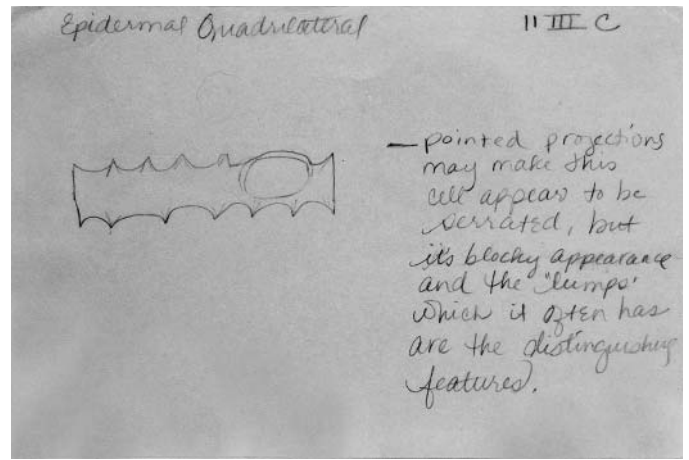 Epidermal Quadrilateral
11 III C
— pointed projections
may make this
cell appear to be
serrated, but
it's blocky appearance
and the "lumps"
which it often has
are the distinguishing
features.